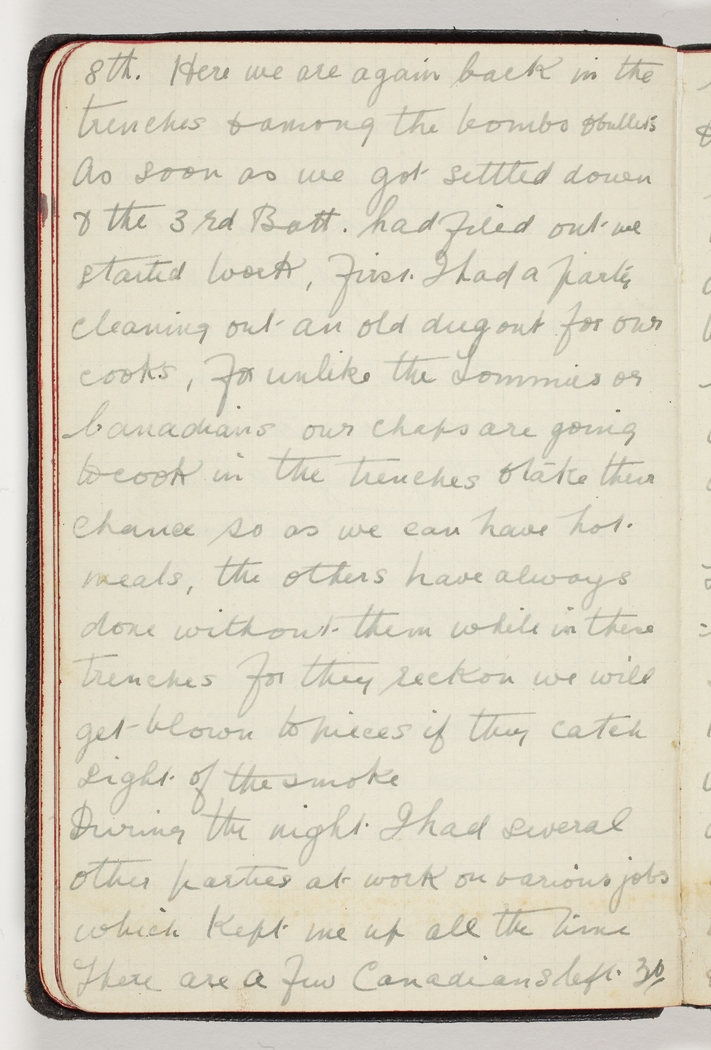 8th. Here we are again back in the
trenches & among the bombs & bullets
As soon as we got settled down
& the 3rd Batt. had filed out we
started work, first I had a party
cleaning out an old dugout for our
cooks, for unlike the Tommies or
Canadians our chaps are going
to cook in the trenches & take their
chance so as we can have hot
meals, the others have always
done without them while in these
trenches for they reckon we will
get blown to pieces if they catch
sight of the smoke
During the night I had several
other parties at work on various jobs
which kept me up all the time
There are a few Canadians left